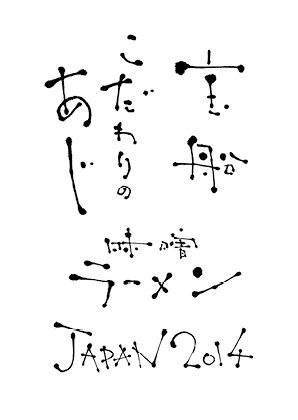 宝船
こだわりの
あじ
味噌
ラーメン
JAPAN 2014